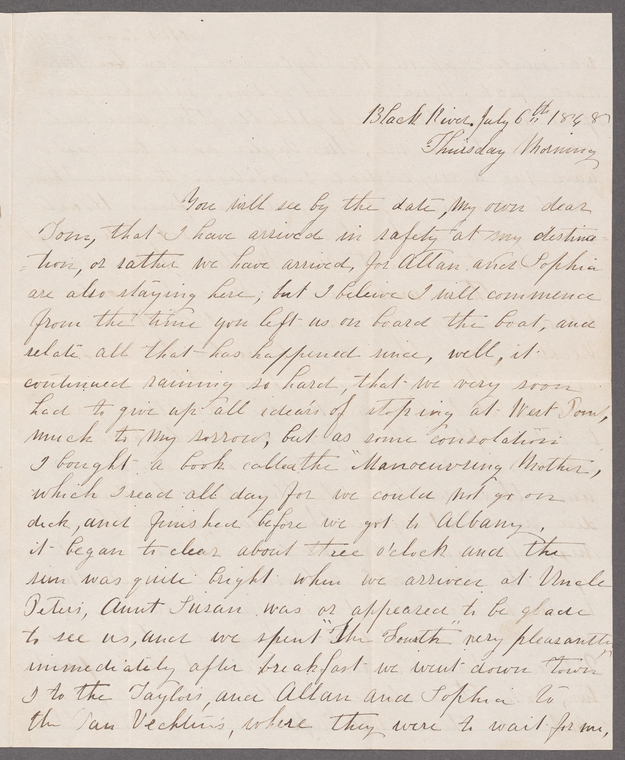 Black River July 6th 1848
Thursday Morning
You will see by the date, my own dear
Tom, that I have arrived in safety at my destina-
-tion, or rather we have arrived, for Allan and Sophia
are also staying here, but I beleive I will commence
from the time you left us on board the boat, and
relate all that has happened since, well, it
continued raining so hard, that we very soon
had to give up all idea's of stoping at West Point,
much to my sorrow, but as some consolation
I bought a book called the "Manoeuvring Mother,
which I read all day for we could not go on
deck, and finished before we got to Albany.
it began to clear about three o'clock and the
sun was quite bright when we arrived at Uncle
Peters, Aunt Susan was or appeared to be glade
to see us, and we spent "The Fourth" very pleasantly
immediately after breakfast we went down town
I to the Taylors, and Allan and Sophia to
the Van Vechtens, where they were to wait for me,